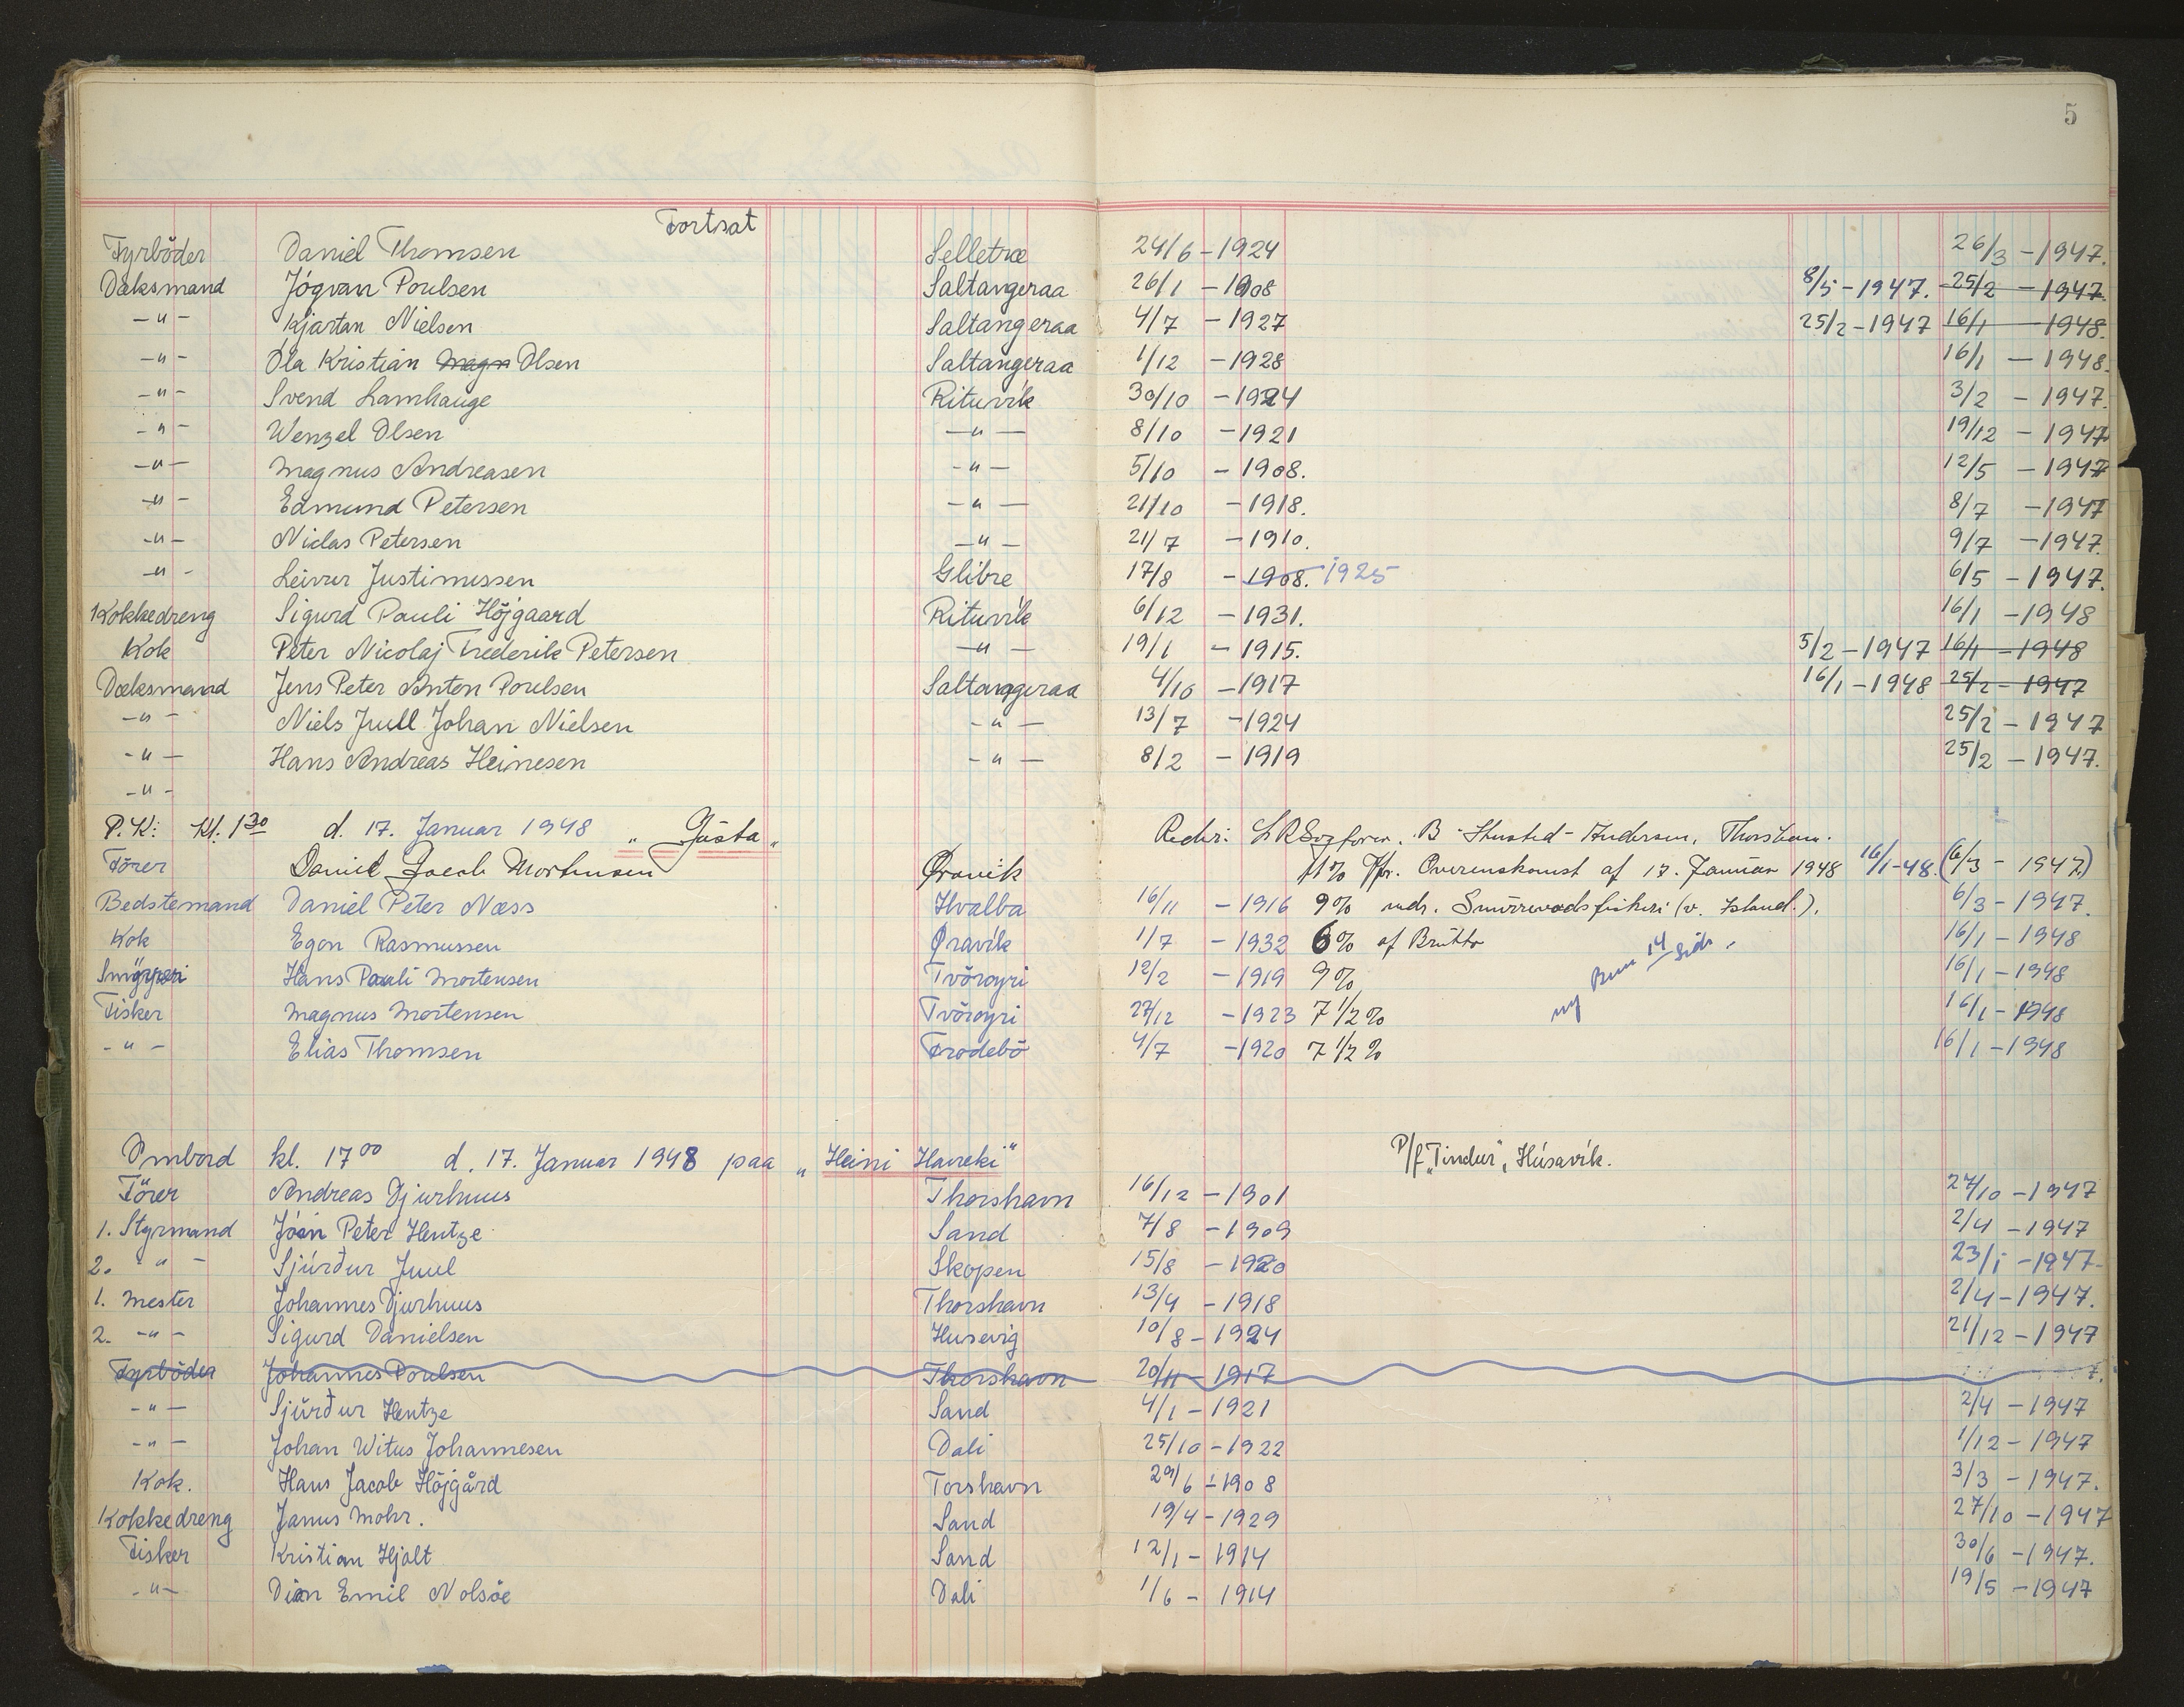 5
Fortsat
Fyrböder Daniel Thomsen Selletræ 24/6 - 1924 26/3 - 1947.
Dæksmand Jógvan Poulsen Saltangeraa 26/1 - 1908 8/5 - 1947. 25/2 - 1947.
-"- Kjartan Nielsen Saltangeraa 4/7 - 1927 25/2 - 1947 16/1 - 1948.
-"- Óla Kristian Magn Olsen Saltangeraa 1/12 - 1928 16/1 - 1948.
-"- Svend Lamhauge Rituvík 30/10 - 1924 3/2 - 1947.
-"- Wenzel Olsen -"- 8/10 - 1921 19/12 - 1947
-"- Magnus Andreasen -"- 5/10 - 1908. 12/5 - 1947
-"- Edmund Petersen -"- 21/10 - 1918. 8/7 - 1947
-"- Niclas Petersen -"- 21/7 - 1910. 9/7 - 1947.
-"- Leivur Justinussen Glibre 17/8 - 1908. 1925 6/5 - 1947.
Kokkedreng Sigurd Pauli Höjgaard Rituvík 6/12 - 1931. 16/1 - 1948
Kok Peter Nicolaj Frederik Petersen -"- 19/1 - 1915. 5/2 - 1947 16/1 - 1948
Dæksmand Jens Peter Anton Poulsen Saltangeraa 4/10 - 1917 16/1 - 1948 25/2 - 1947
-"- Niels Juull Johan Nielsen -"- 13/7 - 1924 25/2 - 1947
-"- Hans Andreas Heinesen -"- 8/2 - 1919 25/2 - 1947.
-"-
P.K: Kl. 1 30 d. 17. Januar 1948 „Gústa" Rederi: LRSagförer. B. Husted-Andersen, Thorshavn.
Förer Daniel Jacob Mortensen Øravik 11% Iflr. Overenskomst af 17. Januar 1948 16/1-48. (6/3 - 1947)
Bedstemand Daniel Peter Næss Hvalba 16/11 - 1916 9% undr. Snurrevodsfiskeri (v. Island.). 6/3 - 1947.
Kok Egon Rasmussen Øravík 1/7 - 1932 6% af Brutto 16/1 - 1948
Hans Pauli Mortensen Tvöroyri 12/2 - 1919 9% 16/1 - 1948
ny 14 Side.
Fisker Magnus Mortensen Tvöroyri 27/12 - 1923 7 1/2 % 16/1 - 1948
-"- Elias Thomsen Frodebö 4/7 - 1920 7 1/2 % 16/1 - 1948
Ombord kl. 17 00 d. 17. Januar 1948 paa „Heini Havreki" P/f „Tindur", Húsavík.
Förer Andreas Djurhuus Thorshavn 16/12 - 1901 27/10 - 1947
1. Styrmand Jóan Peter Hentze Sand 7/8 - 1909 2/4 - 1947
2. -"- Sjúrður Juul Skopen 15/8 - 1920 23/1 - 1947-
1. Mester Johannes Djurhuus Thorshavn 13/4 - 1918 2/4 - 1947.
2. -"- Sigurd Danielsen Husevig 10/8 - 1924 21/12 - 1947
Fyrböder Johannes Poulsen Thorshavn 20/11 - 1917
-"- Sjúrður Hentze Sand 4/1 - 1921 2/4 - 1947
-"- Johan Witus Johannesen Dali 25/10 - 1922 1/12 - 1947
Kok. Hans Jacob Höjgård Torshavn 29/6 - 1908 3/3 - 1947.
Kokkedreng Janus Mohr. Sand 19/4 - 1929 27/10 - 1947
Fisker Kristian Hjalt Sand 12/1 - 1914 30/6 - 1947.
-"- Dian Emil Nolsöe Dali 1/6 - 1914 19/5 - 1947